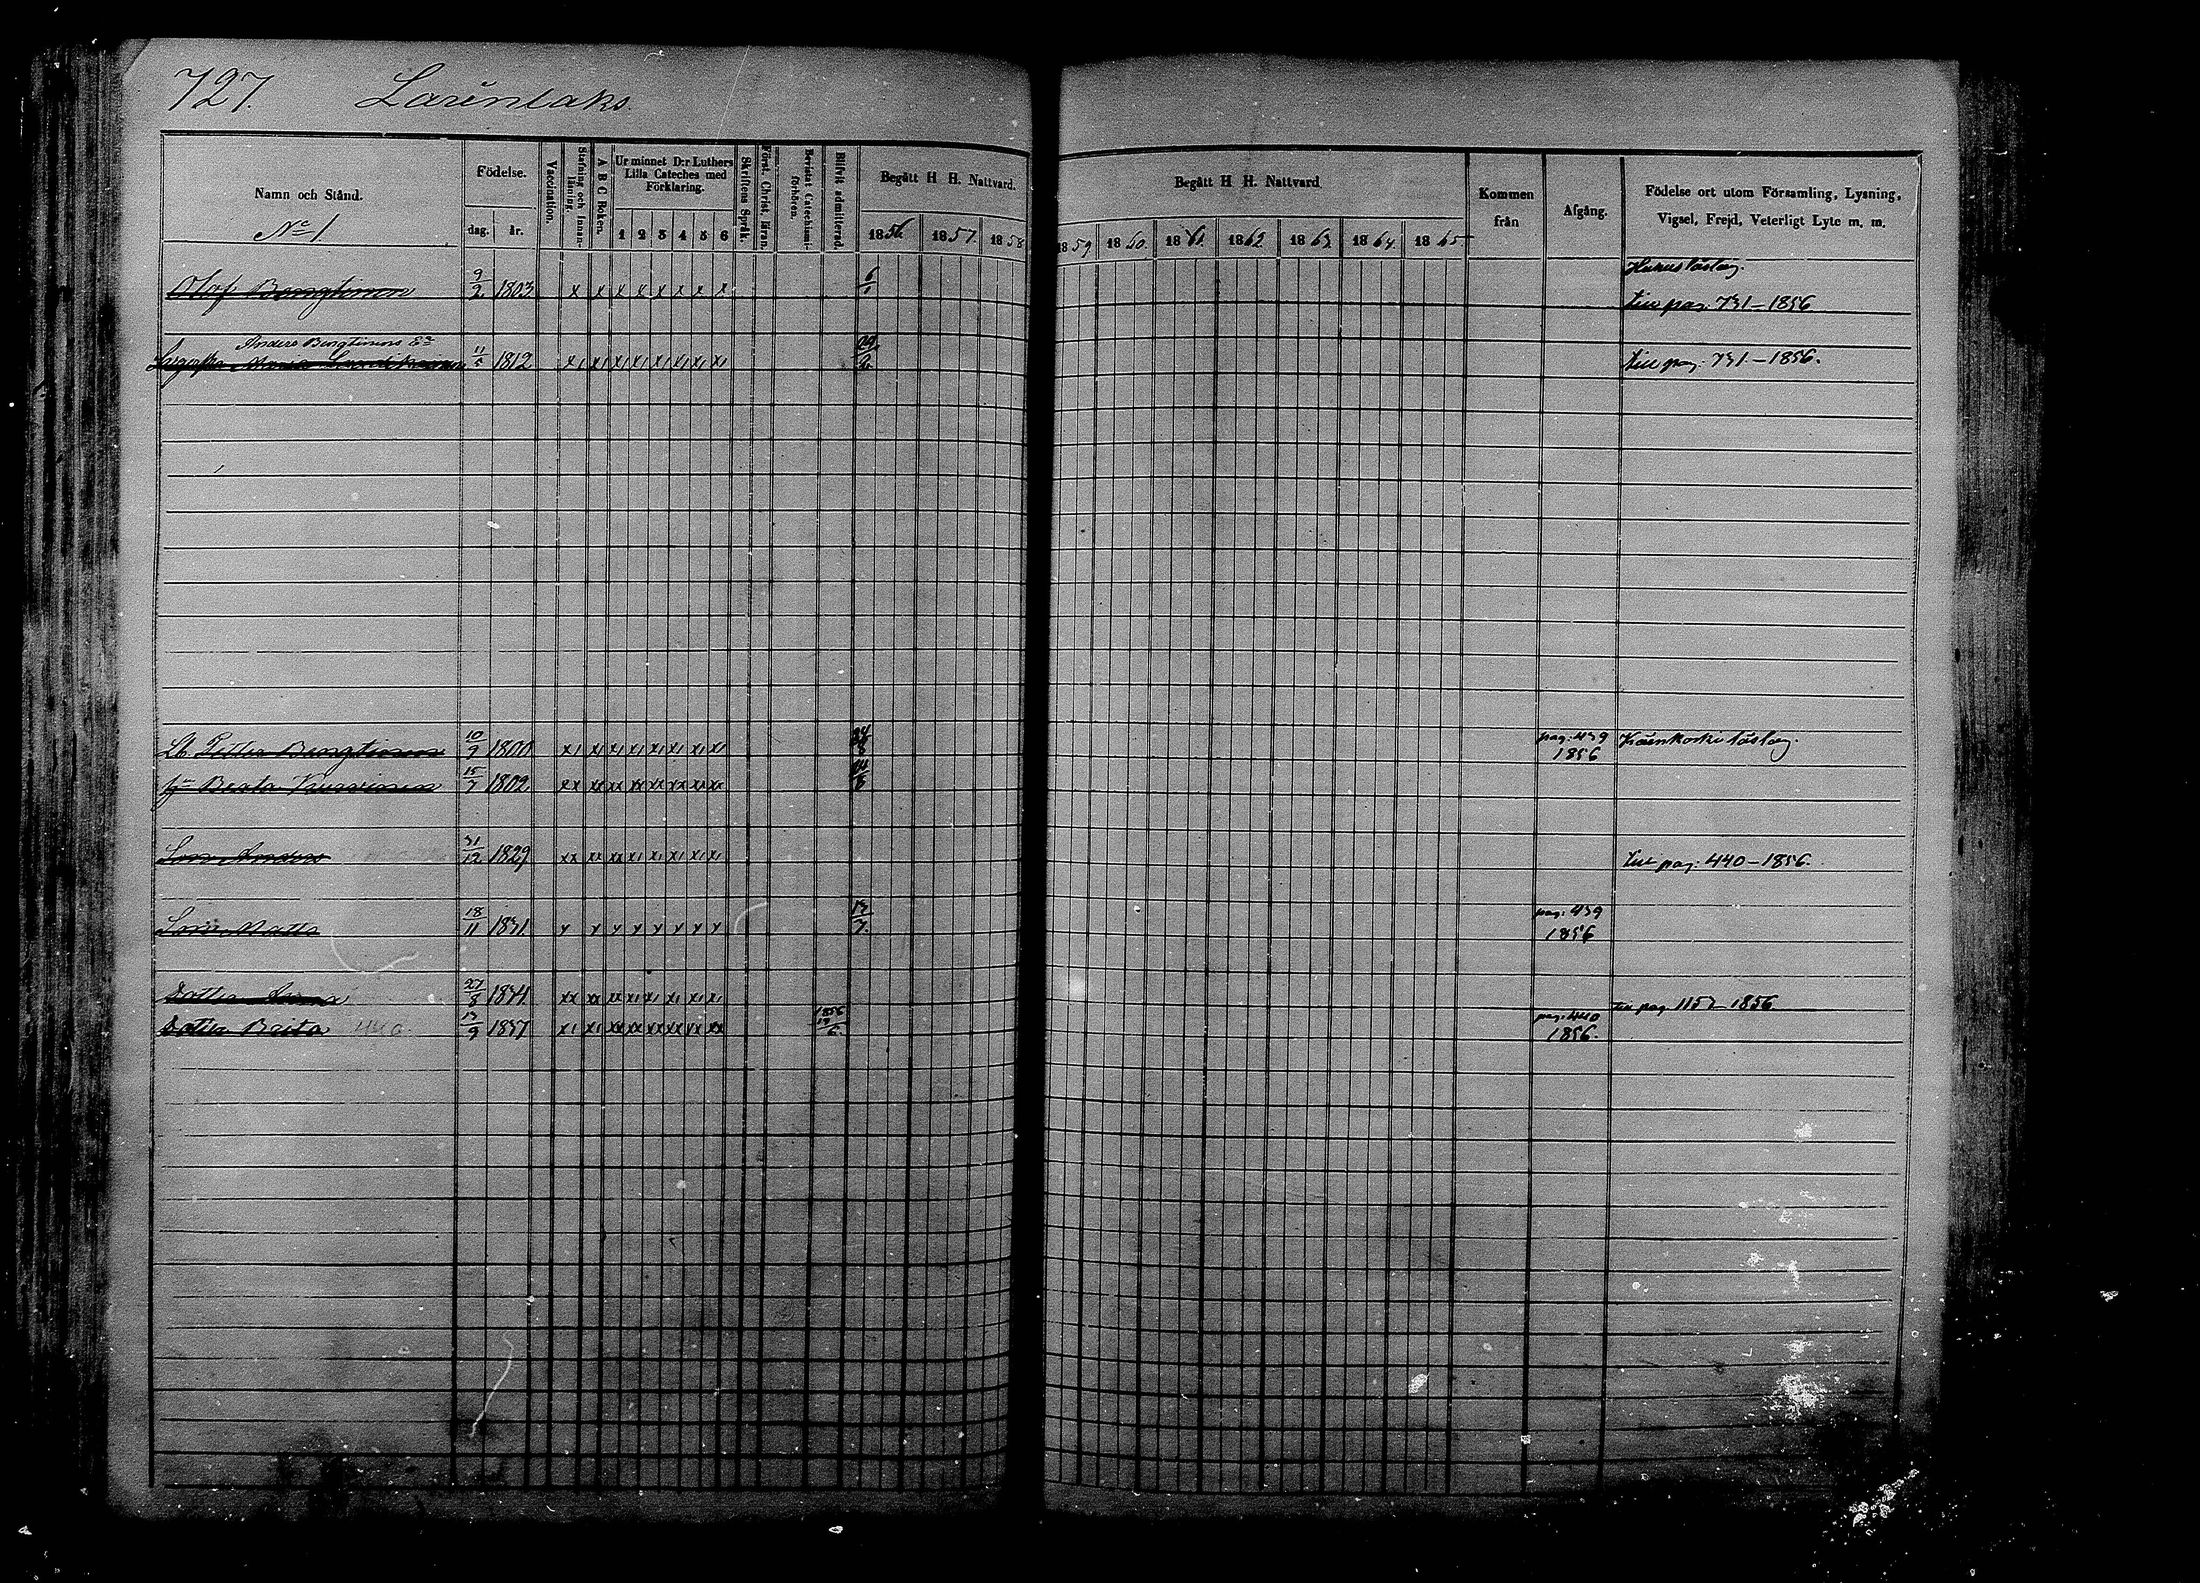 727. Larinlaks
Namn och Stånd.
No 1
Födelse.
dag. år.
Vaccination.
Stafning och Innanläsning.
A B C Boken.
Ur minnet D:r Luthers Lilla Cateches med Förklaring.
1 2 3 4 5 6
Skriftens Språk.
Först. Christ. Kran.
Bevistat Catechismi förhören.
Blifvit admitterad.
Begått H H. Nattvard.
1856. 1857. 1858
Begått H H. Nattvard
1859 1860. 1861. 1862 1863 1864. 1865
Kommen från
Afgång.
Födelse ort utom Församling, Lysning, Vigsel, Frejd, Veterligt Lyte m. m.
Olof Bengtinen 9/2 1803 x x x x x x x x 6/1 till pag. 731–1856
Anders Bengtinens Ea
Maria 1812 x1 x1 x1 x1 x1 x1 x1 x1 till pag: 731.–1856.
Petter Bengtinen 10/9 1800 x1 x1 x1 x1 x1 x1 x1 x1 pag: 439 1856
Beata 15/7 1802 xx xx xx xx xx xx xx xx
Son Anders 31/12 1829 xx xx xx x1 x1 x1 x1 x1 till pag: 440–1856.
Son Matts 18/11 1831 x x x x x x x x 13/7 pag: 439 1856
Dotter Anna 27/8 1834 xx xx xx x1 x1 x1 x1 x1 till pag. 1157–1856.
Dotter Brita 440. 13/9 1837 x1 x1 xx xx xx xx xx xx 1856 pag: 440 1856.